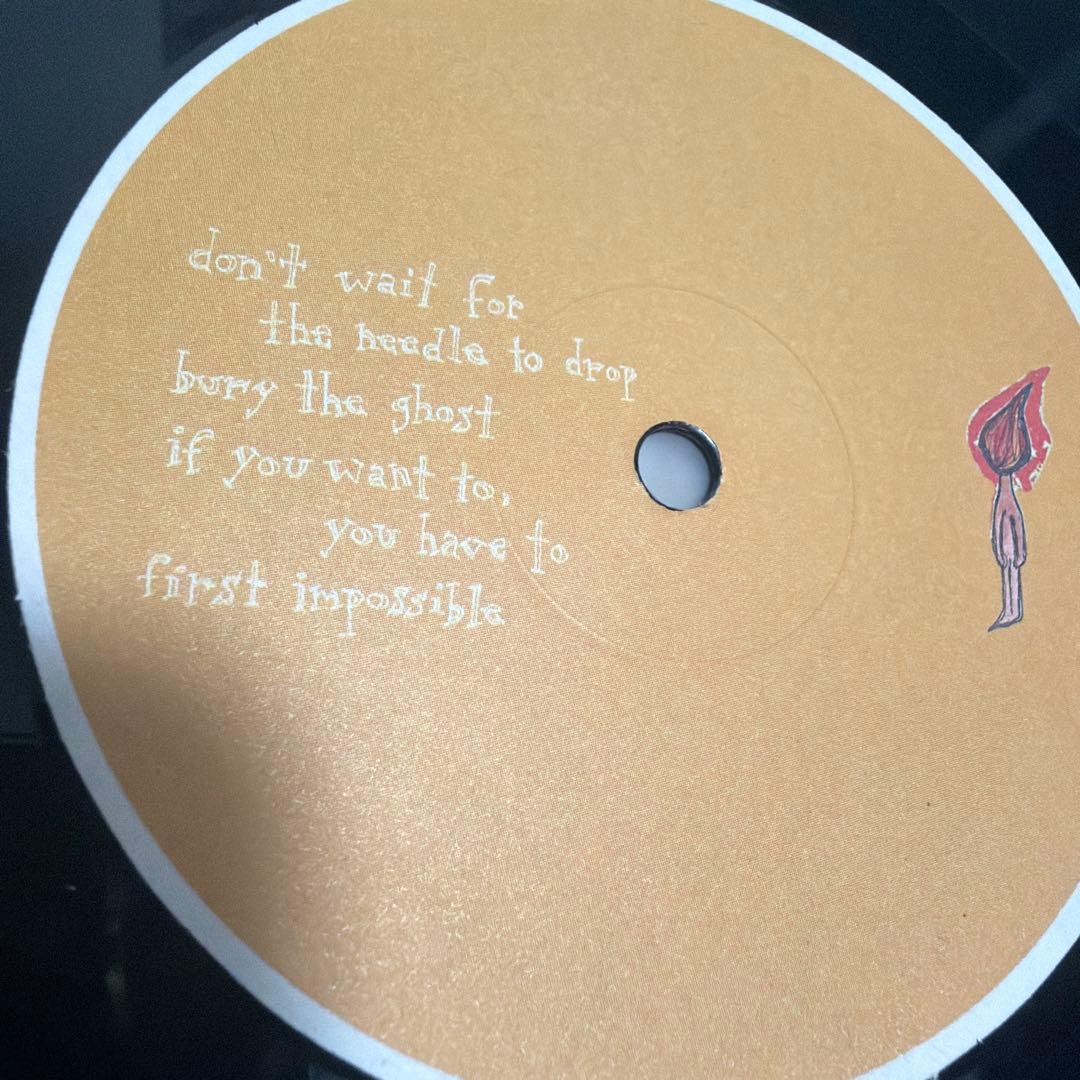 don't wait for
the needle to drop
bury the ghost
if you want to,
you have to
first impossible